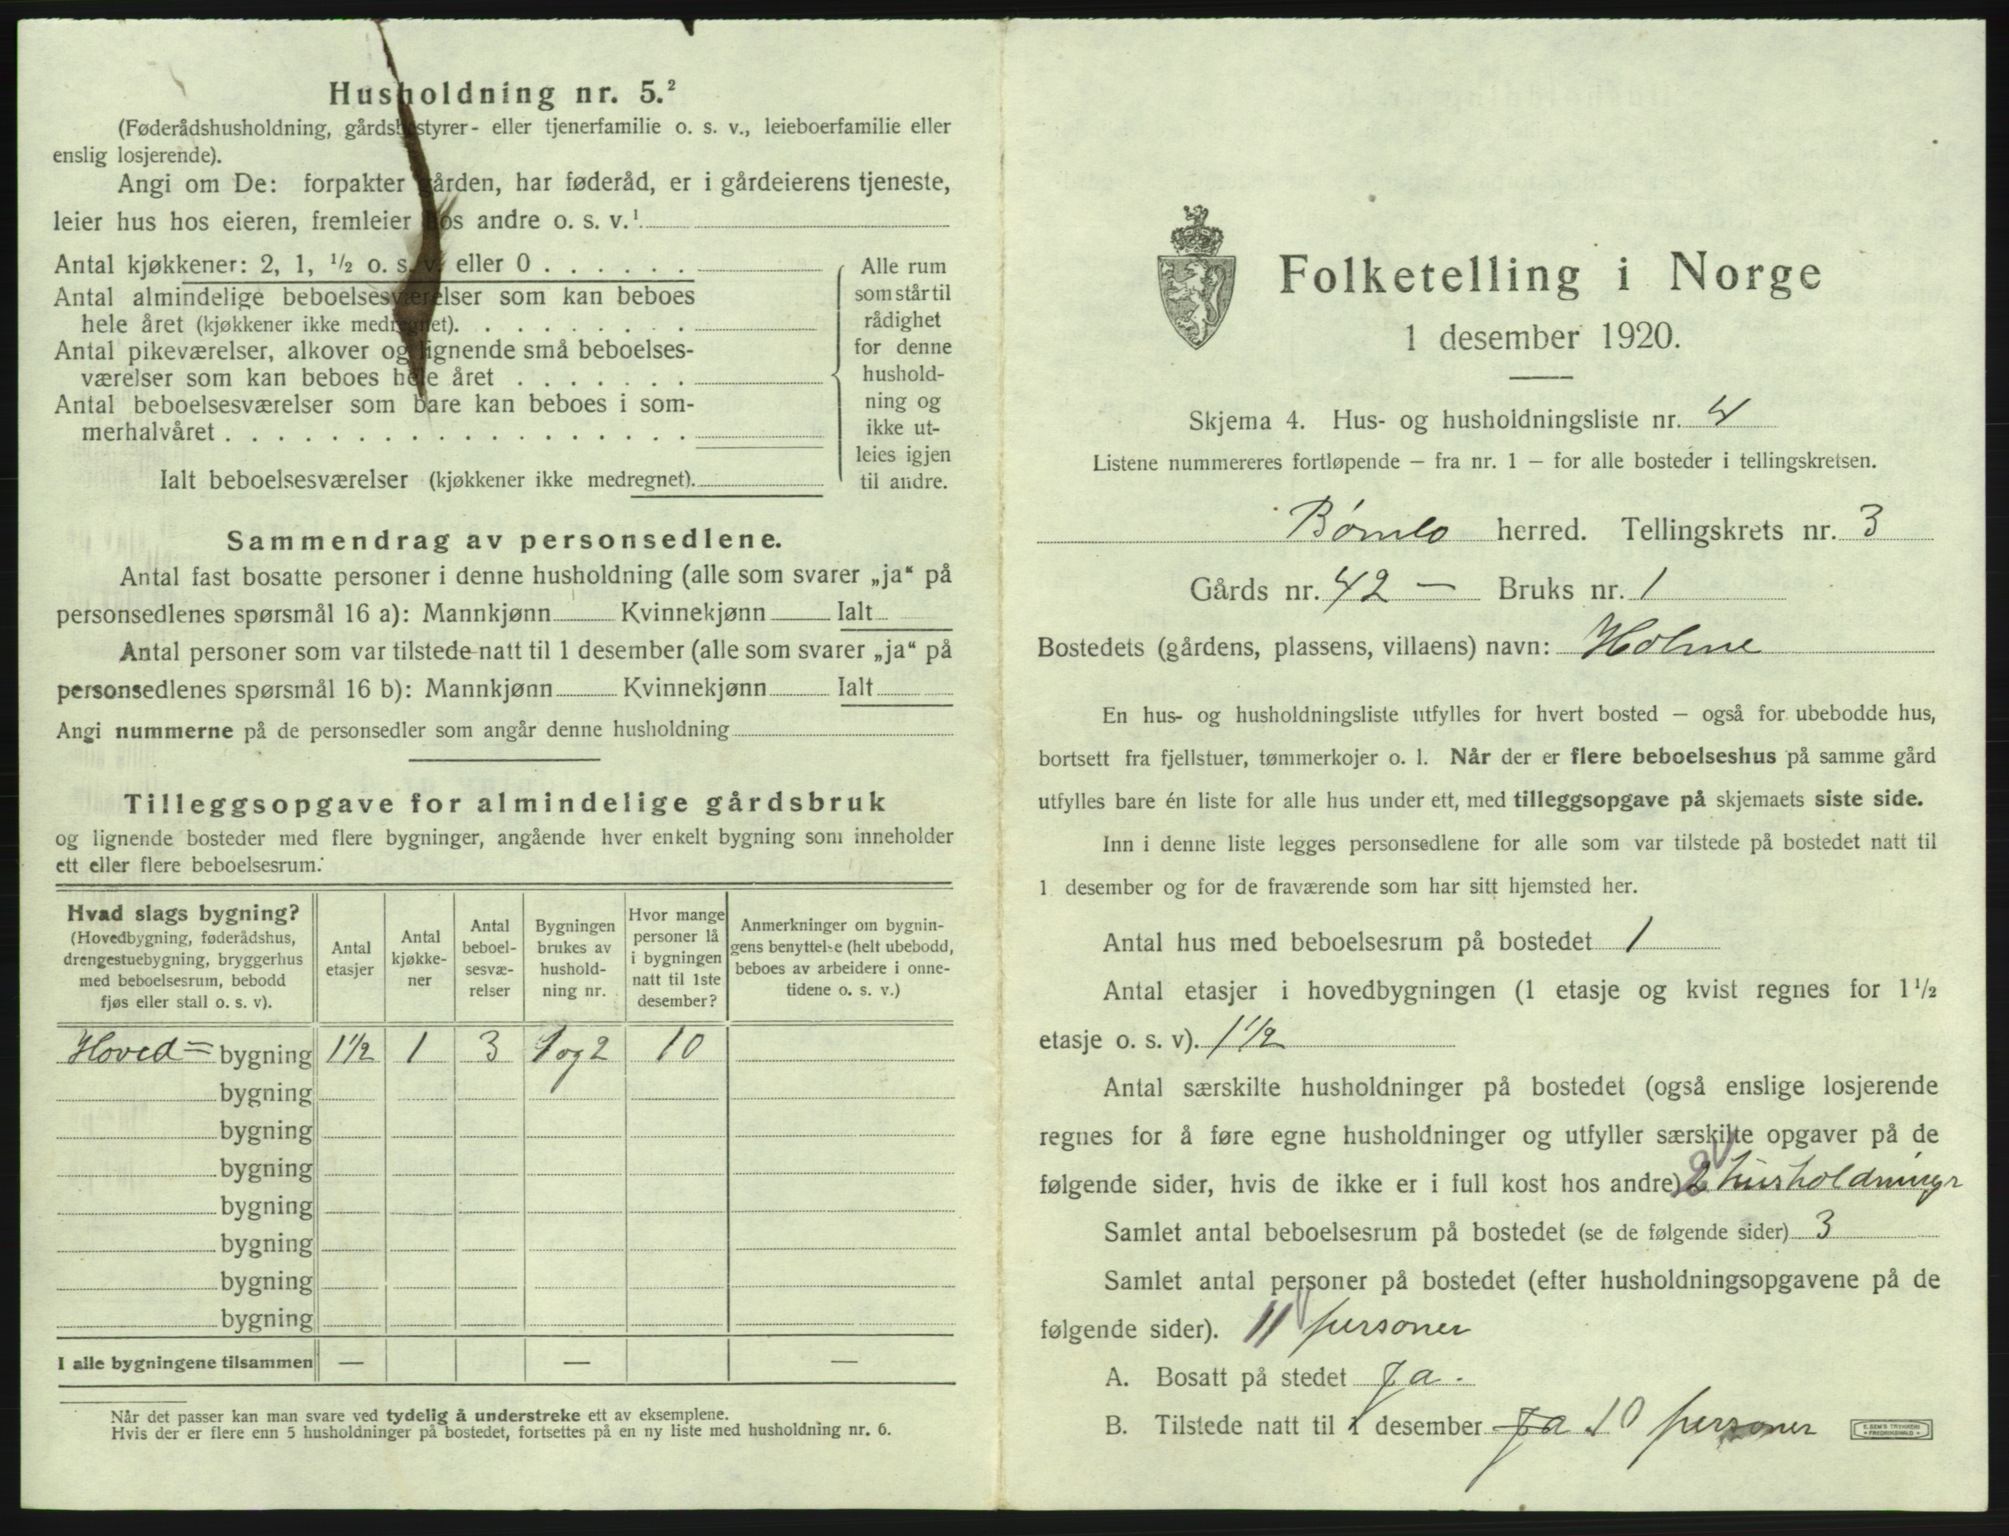 Husholdning nr. 5.²
(Føderådshusholdning, gårdsbestyrer- eller tjenerfamilie o. s. v., leieboerfamilie eller
enslig losjerende).
Angi om De: forpakter gården, har føderåd, er i gårdeierens tjeneste,
leier hus hos eieren, fremleier hos andre o. s. v.¹
Antal kjøkkener: 2, 1, ½ o. s. v. eller 0 . . . . . .
Antal almindelige beboelsesværelser som kan beboes
hele året (kjøkkener ikke medregnet). . . . . . . . .
Antal pikeværelser, alkover og lignende små beboelses-
værelser som kan beboes hele året . . . . . . .
Antal beboelsesværelser som bare kan beboes i som-
merhalvåret . . . . . . . . . . . . . . . . .
Ialt beboelsesværelser (kjøkkener ikke medregnet).
Alle rum
som står til
rådighet
for denne
hushold-
ning og
ikke ut-
leies igjen
til andre.
Sammendrag av personsedlene.
Antal fast bosatte personer i denne husholdning (alle som svarer „ja“ på
personsedlenes spørsmål 16 a): Mannkjønn Kvinnekjønn Ialt
Antal personer som var tilstede natt til 1 desember (alle som svarer „ja“ på
personsedlenes spørsmål 16 b): Mannkjønn Kvinnekjønn Ialt
Angi nummerne på de personsedler som angår denne husholdning
Tilleggsopgave for almindelige gårdsbruk
og lignende bosteder med flere bygninger, angående hver enkelt bygning som inneholder
ett eller flere beboelsesrum.
Hvad slags bygning?
(Hovedbygning, føderådshus,
drengestuebygning, bryggerhus
med beboelsesrum, bebodd
fjøs eller stall o. s. v).
Antal
etasjer
Antal
kjøkke-
ner
Antal
beboel-
sesvæ-
relser
Bygningen
brukes av
hushold-
ning nr.
Hvor mange
personer lå
i bygningen
natt til 1ste
desember?
Anmerkninger om bygnin-
gens benyttelse (helt ubebodd,
beboes av arbeidere i onne-
tidene o. s. v.)
Hoved= bygning 1½ 1 3 1 og 2 10
bygning
bygning
bygning
bygning
bygning
bygning
bygning
I alle bygningene tilsammen — — —
Når det passer kan man svare ved tydelig å understreke ett av eksemplene.
Hvis der er flere enn 5 husholdninger på bostedet, fortsettes på en ny liste med husholdning nr. 6.
Folketelling i Norge
1 desember 1920.
Skjema 4. Hus- og husholdningsliste nr. 4
Listene nummereres fortløpende — fra nr. 1 — for alle bosteder i tellingskretsen.
Bømlo herred. Tellingskrets nr. 3
Gårds nr. 42 — Bruks nr. 1
Bostedets (gårdens, plassens, villaens) navn: Holme
En hus- og husholdningsliste utfylles for hvert bosted — også for ubebodde hus,
bortsett fra fjellstuer, tømmerkojer o. l. Når der er flere beboelseshus på samme gård
utfylles bare én liste for alle hus under ett, med tilleggsopgave på skjemaets siste side.
Inn i denne liste legges personsedlene for alle som var tilstede på bostedet natt til
1 desember og for de fraværende som har sitt hjemsted her.
Antal hus med beboelsesrum på bostedet 1
Antal etasjer i hovedbygningen (1 etasje og kvist regnes for 1½
etasje o. s. v). 1½
Antal særskilte husholdninger på bostedet (også enslige losjerende
regnes for å føre egne husholdninger og utfyller særskilte opgaver på de
følgende sider, hvis de ikke er i full kost hos andre) 2 husholdninger
Samlet antal beboelsesrum på bostedet (se de følgende sider) 3
Samlet antal personer på bostedet (efter husholdningsopgavene på de
følgende sider). 11 personer
A. Bosatt på stedet ja.
B. Tilstede natt til 1 desember ja 10 personer